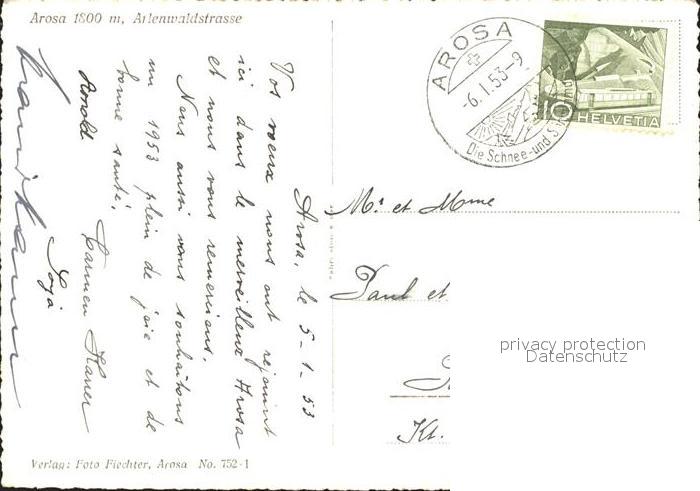 Arosa 1800 m, Arlenwaldstrasse
AROSA
-6.1.53-9
Die Schnee-und
10
HELVETIA
Arosa, le 5-1-53
Vos voeux nous ont rejoint
ici dans le merveilleux Arosa
et nous vous remercions.
Nous aussi vous souhaitons
un 1953 plein de joie et de
bonne santé.
Arnold
Carmen
M. et Mme
Paul et
Kt.
privacy protection
Datenschutz
Verlag: Foto Fiechter, Arosa No. 752-1